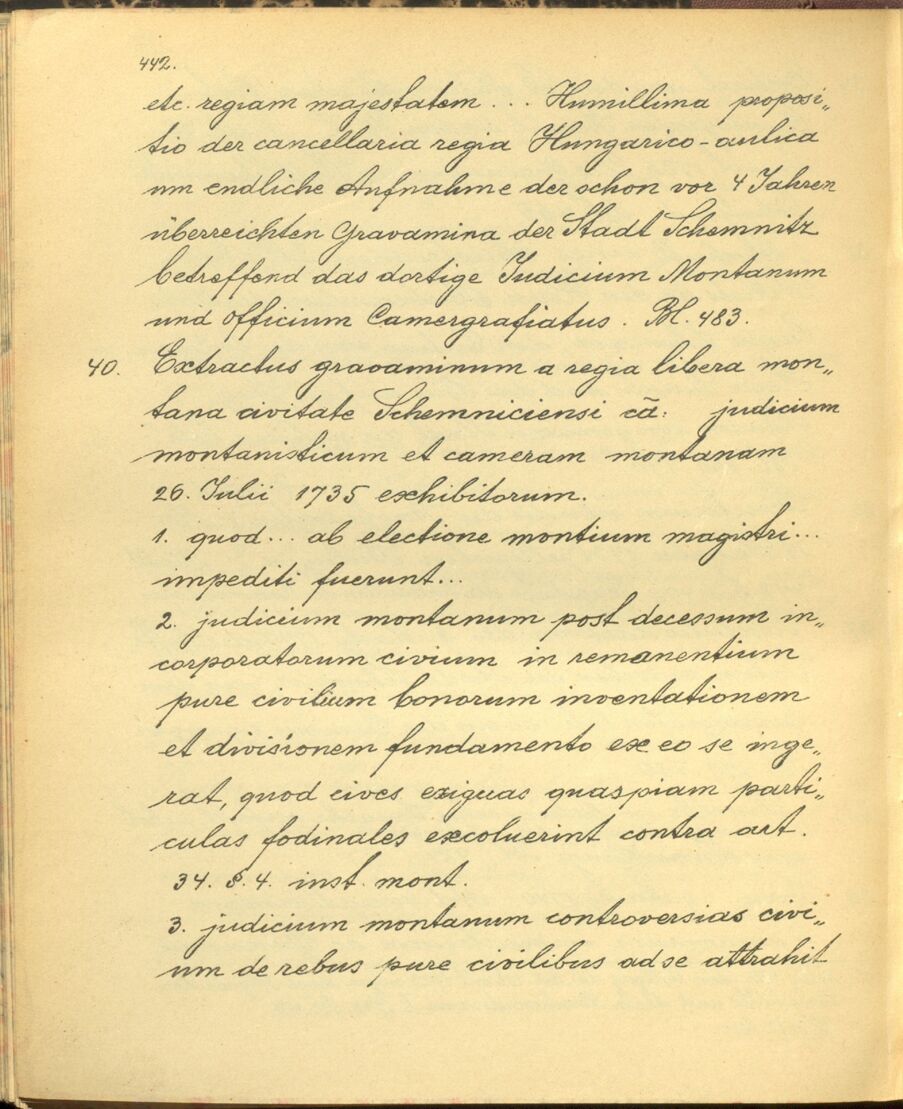 442.
etc. regiam majestatem ... Humillima proposi„
tio der cancellaria regia Hungarico-aulica
um endliche Aufnahme der schon vor 4 Jahren
überreichten Gravamina der Stadt Schemnitz
betreffend das dortige Iudicium Montanum
und officium Camergrafiatus. Bl. 483.
40. Extractus gravaminum a regia libera mon„
tana civitate Schemniciensi cã: judicium
montanisticum et cameram montanam
26. Iulii 1735 exhibitorum.
1. quod... ab electione montium magistri...
impediti fuerunt...
2. judicium montanum post decessum in„
corporatorum civium in remanentium
pure civilium bonorum inventationem
et divisionem fundamento ex eo se inge„
rat, quod cives exiguas quaspiam parti„
culas fodinales excoluerint contra art.
34. §. 4. inst. mont.
3. judicium montanum controversias civi„
um de rebus pure civilibus ad se attrahit